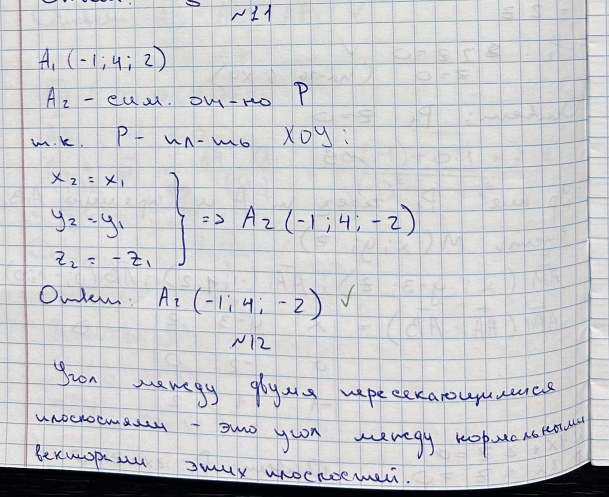 №11
A₁ (-1; 4; 2)
A₂ - сим. от-но P
т.к. P - пл-ть XOY:
x₂ = x₁
y₂ = y₁ => A₂ (-1; 4; -2)
z₂ = -z₁
Ответ: A₂ (-1; 4; -2) ✓
№12
Угол между двумя пересекающимися
плоскостями - это угол между нормальными
векторами этих плоскостей.